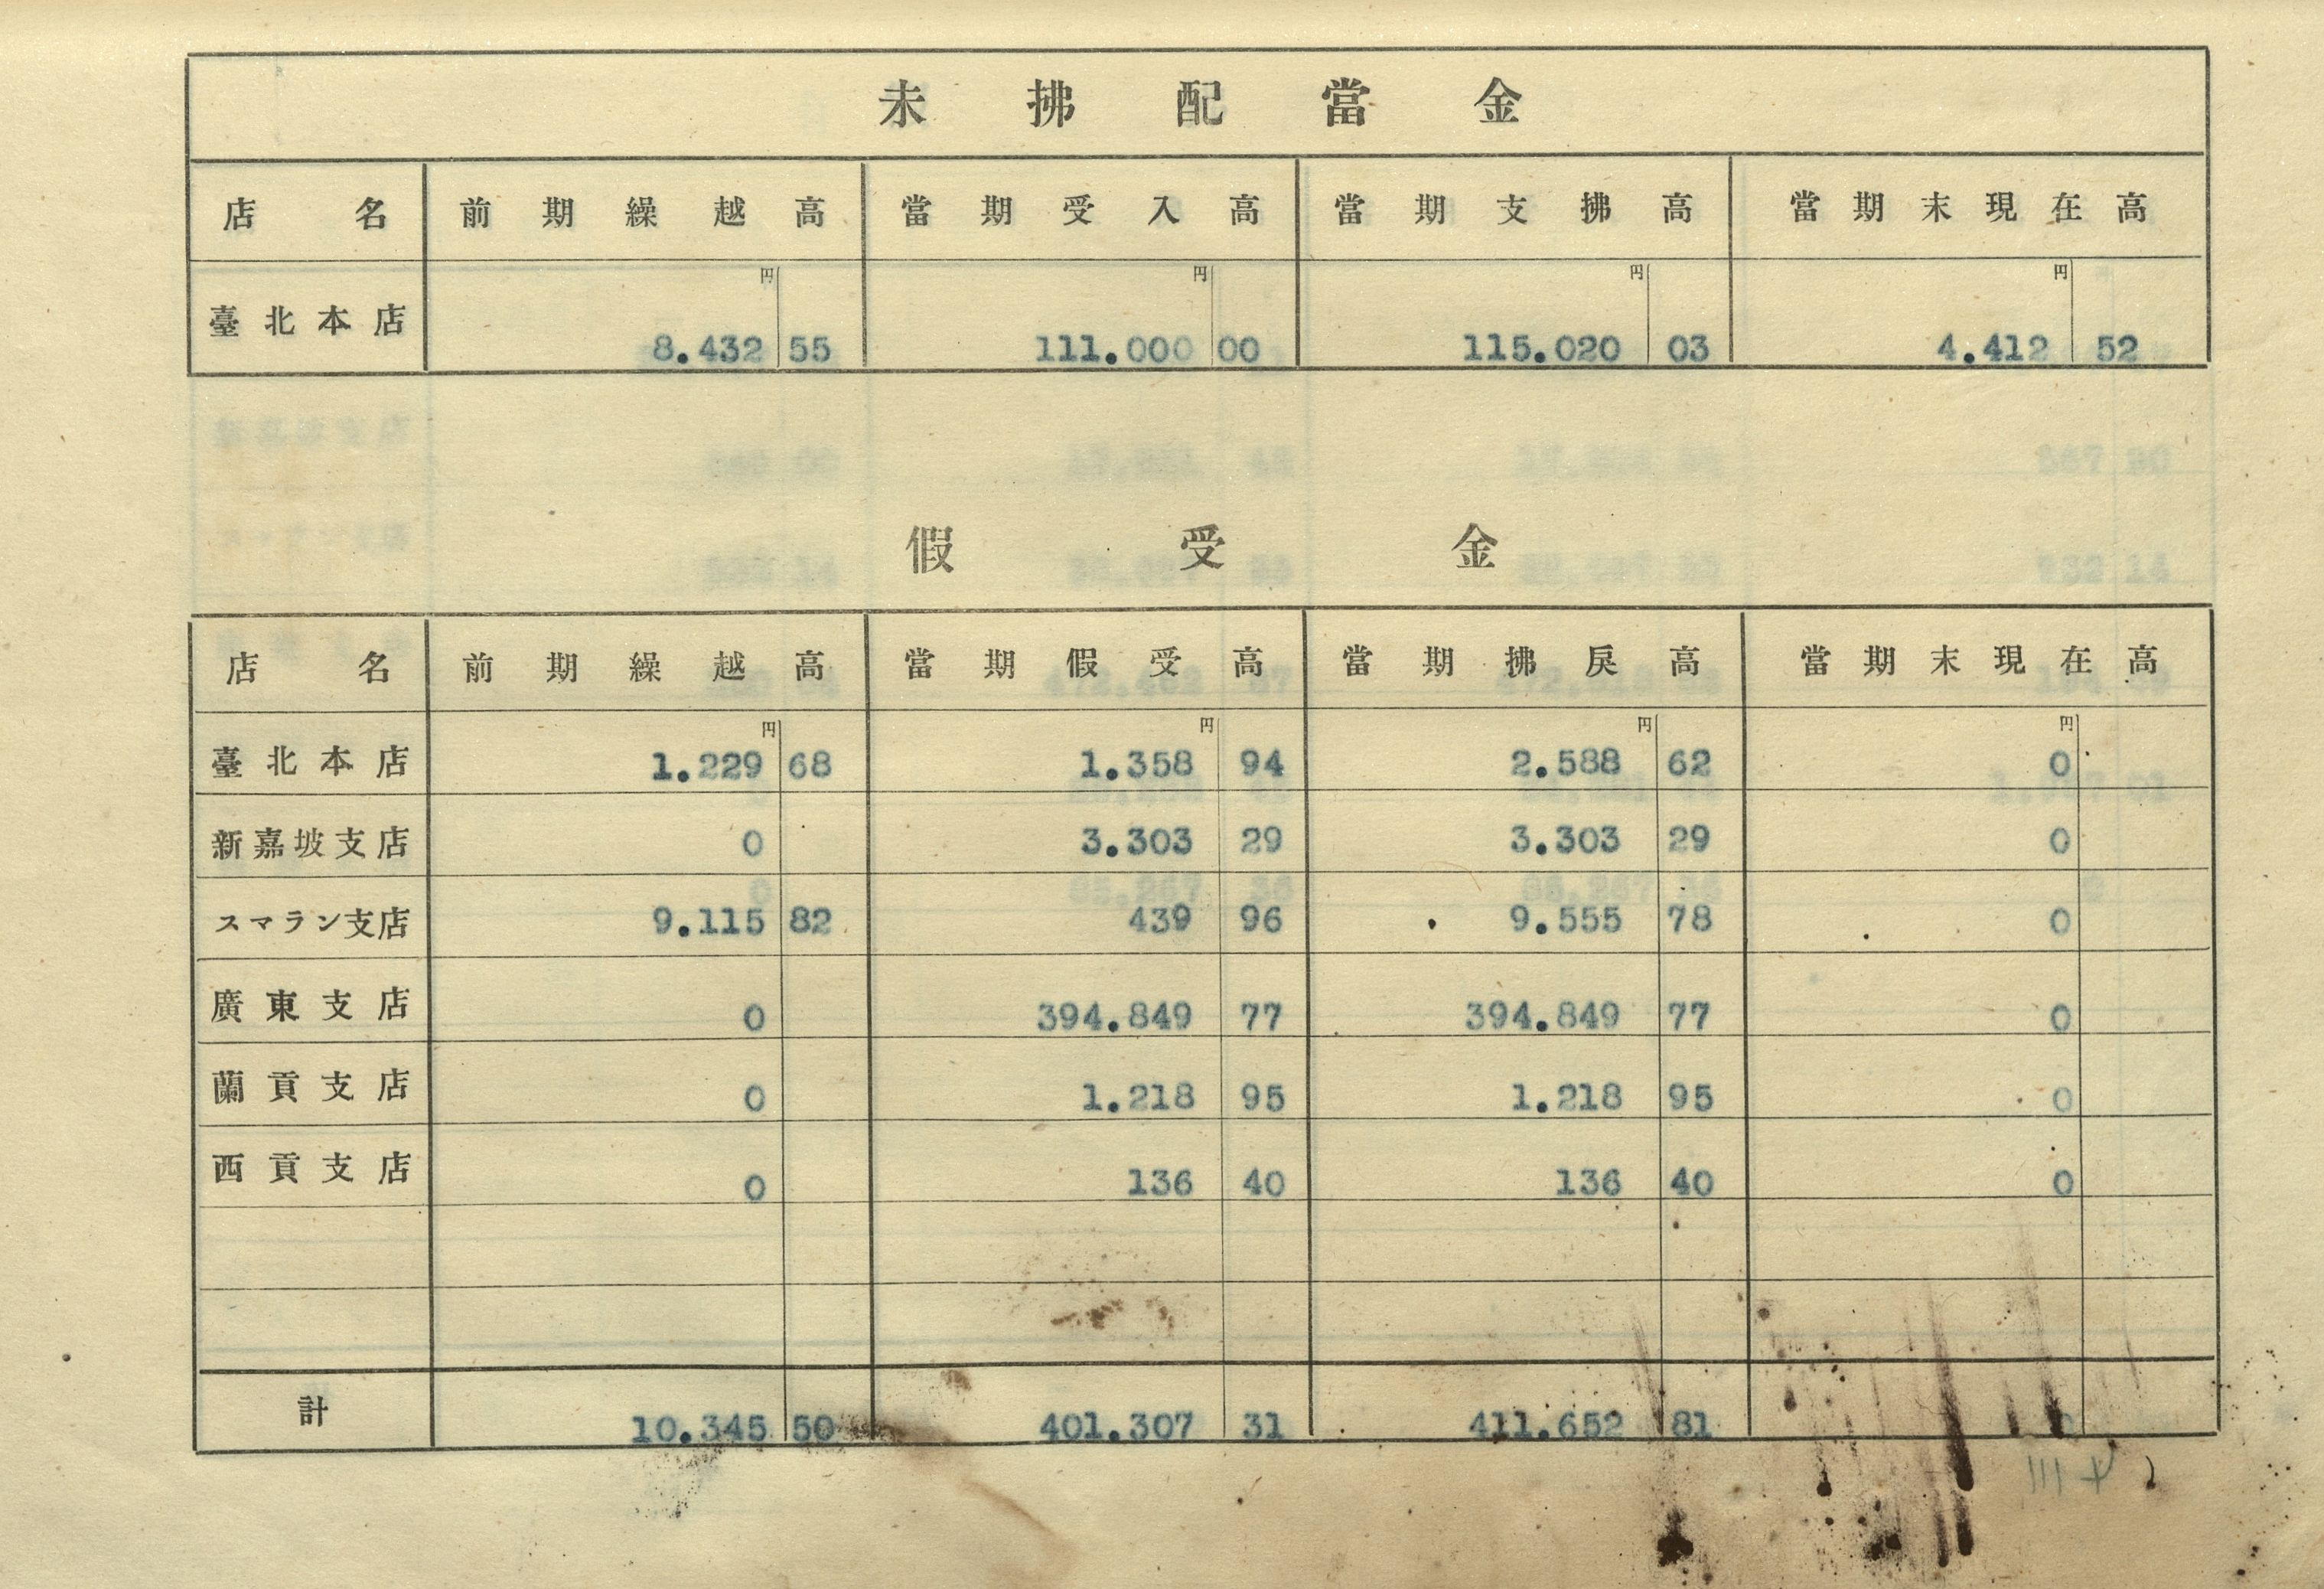 未拂配當金
店名 前期繰越高 當期受入高 當期支拂高 當期末現在高
円 円 円 円
臺北本店 8.432 55 111.000 00 115.020 03 4.412 52
假受金
店名 前期繰越高 當期假受高 當期拂戻高 當期末現在高
円 円 円 円
臺北本店 1.229 68 1.358 94 2.588 62 0
新嘉坡支店 0 3.303 29 3.303 29 0
スマラン支店 9.115 82 439 96 9.555 78 0
廣東支店 0 394.849 77 394.849 77 0
蘭貢支店 0 1.218 95 1.218 95 0
西貢支店 0 136 40 136 40 0
計 10.345 50 401.307 31 411.652 81 0